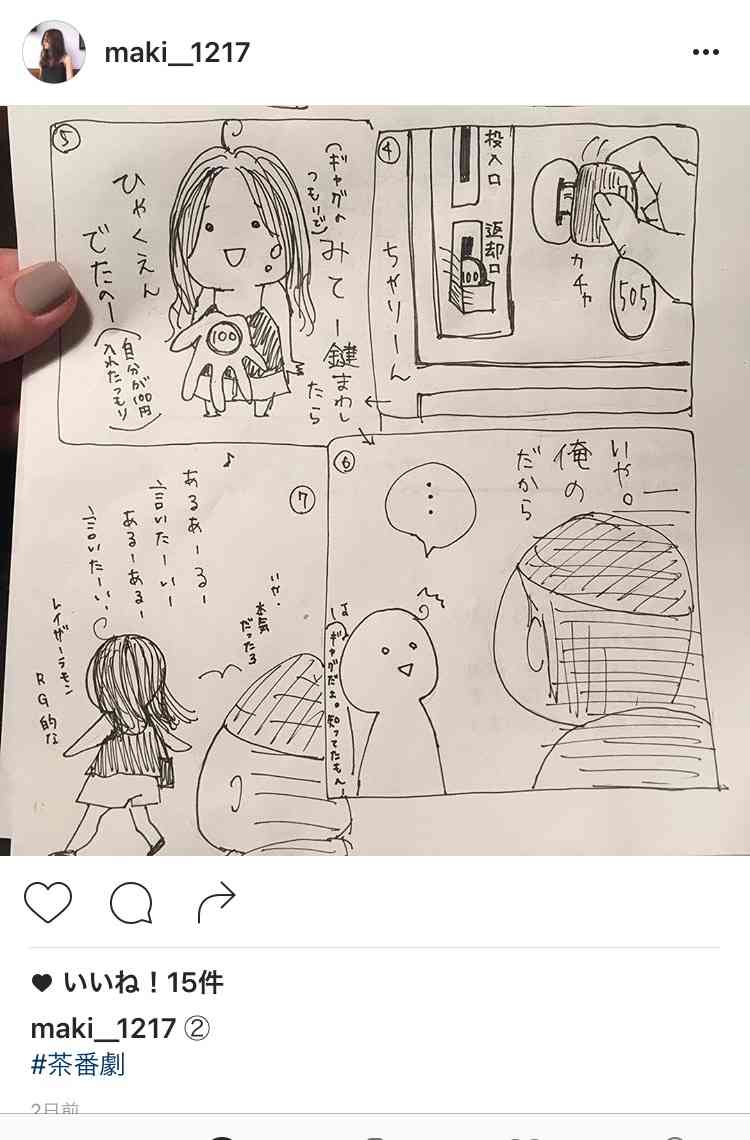 maki__1217
④
投入口
返却口
100
カチャ
505
ちゃりーん
⑤
(ギャグの
つもりで)
みてー鍵まわし
たら
ひゃくえん
でたのー
(自分が100円
入れたつもり)
100
⑥
いや。
俺の
だから
…
は
ギャグだよ。知ってたもんー
⑦
♪
あるあーるー
言いたーいー
あるーあるー
言いたーい、
レイザーラモン
RG的な
いや、
本気
だったろ
いいね！15件
maki__1217 ②
#茶番劇
2日前